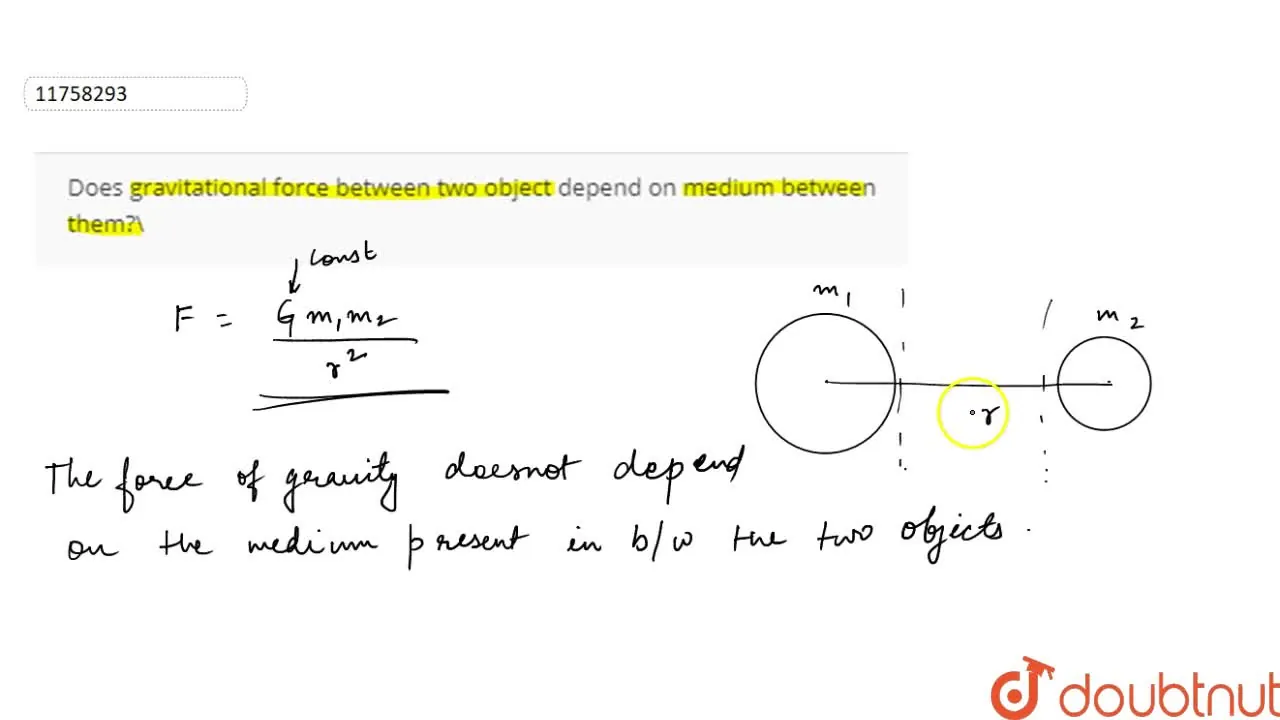 11758293
Does gravitational force between two object depend on medium between
them?\
const
F = G m1 m2
r²
m1
m2
r
The force of gravity doesnot depend
on the medium present in b/w the two objects.
doubtnut